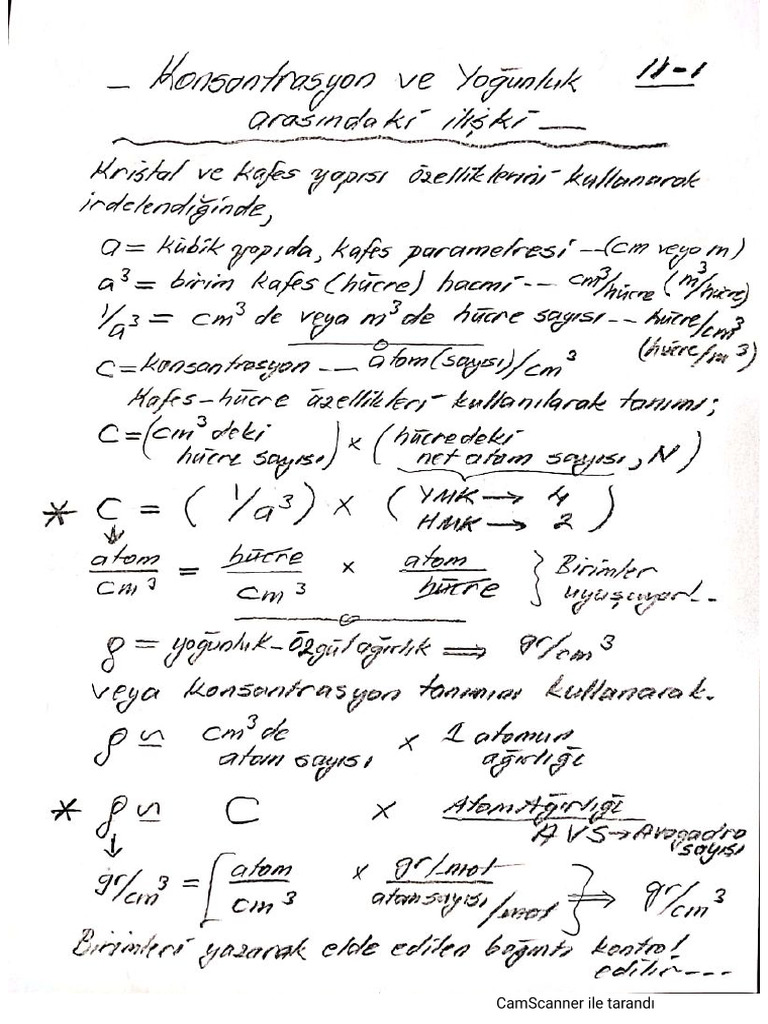 — Konsantrasyon ve Yoğunluk
11-1
arasındaki ilişki —
Kristal ve Kafes yapısı özelliklerini kullanarak
irdelendiğinde,
a = kübik yapıda, kafes parametresi --(cm veya m)
a³ = birim kafes (hücre) hacmi -- cm³/hücre (m³/hücre)
1/a³ = cm³ de veya m³ de hücre sayısı -- hücre/cm³
(hücre/m³)
C = konsantrasyon --- atom (sayısı)/cm³
Kafes-hücre özellikleri kullanılarak tanımı;
C = (cm³ deki hücre sayısı) × (hücredeki net atom sayısı, N)
* C = (1/a³) × (YMK → 4
HMK → 2)
atom/cm³ = hücre/cm³ × atom/hücre } Birimler uyuşuyor!..
ρ = yoğunluk-özgül ağırlık ⟹ gr/cm³
veya konsantrasyon tanımını kullanarak.
ρ ≌ cm³ de atom sayısı × 1 atomun ağırlığı
* ρ ≌ C × Atom Ağırlığı / AVS → Avogadro sayısı
gr/cm³ = [atom/cm³ × gr/mol / atom sayısı/mol } ⟹ gr/cm³
Birimleri yazarak elde edilen bağıntı kontrol
edilir----
CamScanner ile tarandı